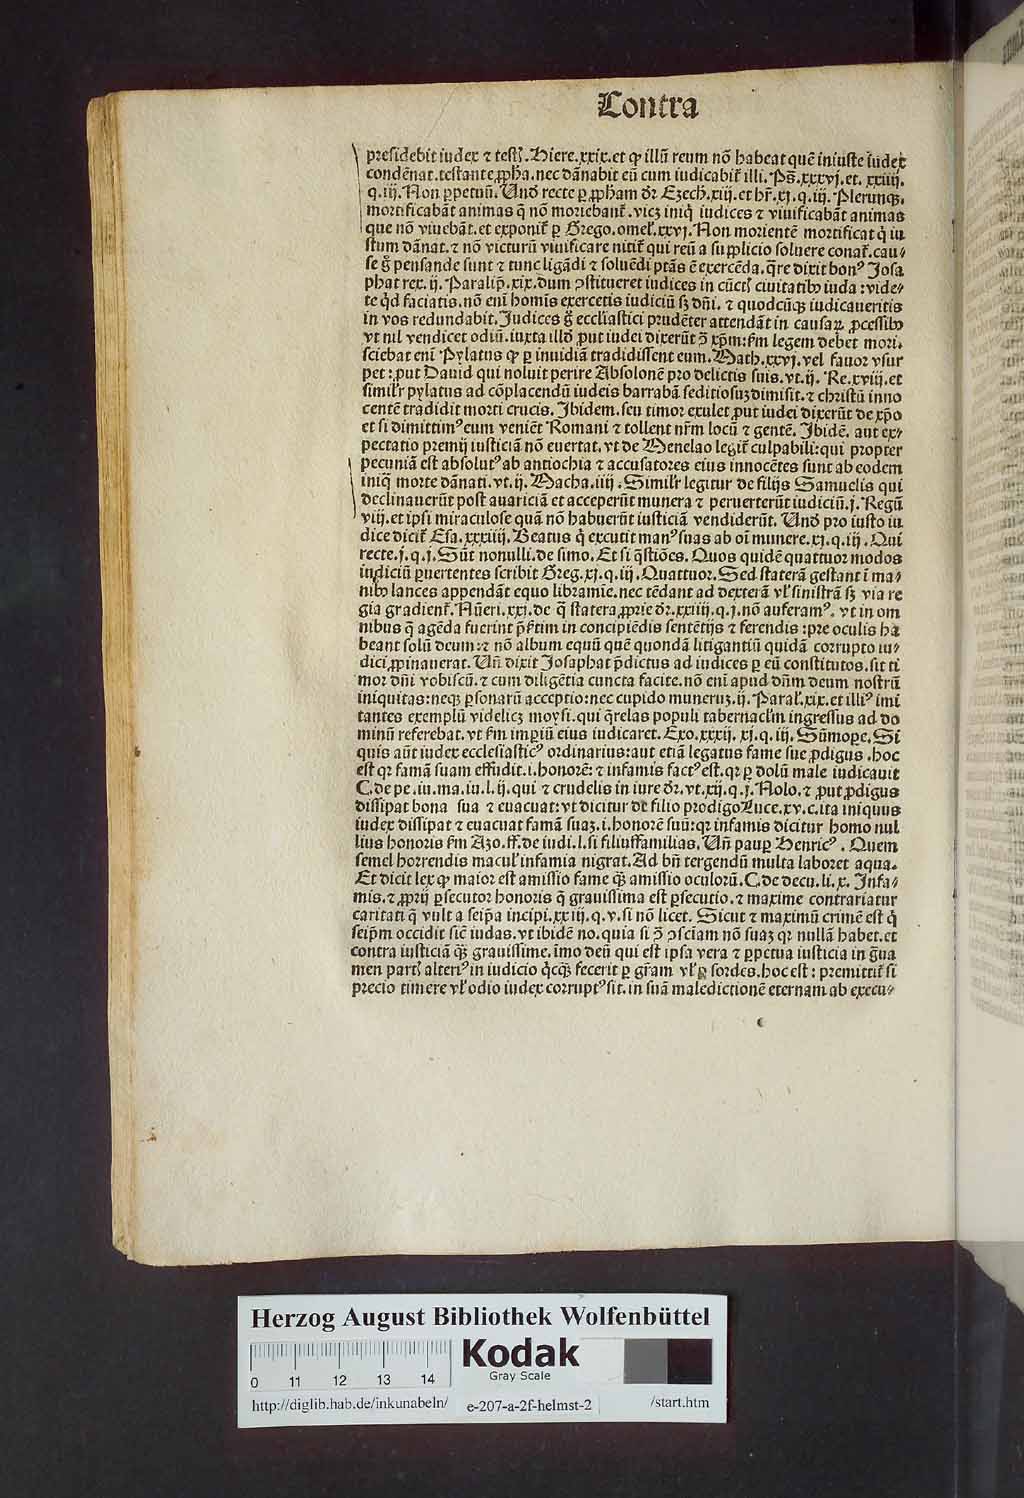 Contra
presidebit iudex ⁊ testꝭ. Hiere.xxix.et ꝙ illũ reum nõ habeat quẽ iniuste iudex
condẽnat.testante ꝓpha.nec dãnabit eũ cum iudicabit̃ illi. Ps̃.xxxvj.et.xxiiij.
q.iij. Non ꝑpetuũ. Uñ recte ꝑ ꝓpham dr̃ Ezech.xiij.et hr̃.xj.q.iij. Plerunqꝫ.
mortificabãt animas q̃ nõ moriebant̃.vicꝫ iniq̃ iudices ⁊ viuificabãt animas
que nõ viuebãt.et exponit̃ ꝑ Grego.omel̃.xxvj. Non morientẽ mortificat q̃ iu
stum dãnat.⁊ nõ victurũ viuificare nitit̃ qui reũ a supplicio soluere conat̃.cau⸗
se g̃ pensande sunt ⁊ tunc ligãdi ⁊ soluẽdi ptãs ẽ exercẽda.q̃re dixit bonꝰ Josa
phat rex.ij. Paralip̃.xix.dum ꝯstitueret iudices in cũctꝭ ciuitatibꝰ iuda : vide⸗
te q̃d faciatis.nõ eni homis exercetis iudiciũ sꝫ dñi. ⁊ quodcũqꝫ iudicaueritis
in vos redundabit. Judices g̃ ecclĩastici prudẽter attendãt in causaꝝ ꝓcessibꝰ
vt nil vendicet odiũ.iuxta illd̃ ꝓut iudei dixerũt ꝯ̃ xp̃m:km̃ legem debet mori.
sciebat eni Pylatus ꝙ ꝑ inuidiã tradidissent eum. Math.xxvj. vel fauor vsur
pet : ꝓut Dauid qui noluit perire Absolonẽ pro delictis suis.vt.ij. Re.xviij.et
similr̃ pylatus ad cõplacendũ iudeis barrabã seditiosuꝫ dimisit.⁊ christũ inno
centẽ tradidit morti crucis. Jbidem.seu timor exulet ꝓut iudei dixerũt de xp̃o
et si dimittimꝰ eum veniẽt Romani ⁊ tollent nr̃m locũ ⁊ gentẽ. Jbidẽ. aut ex⸗
pectatio premij iusticiã nõ euertat.vt de Menelao legit̃ culpabili:qui propter
pecuniã est absolutꝰ ab antiochia ⁊ accusatores eius innocẽtes sunt ab eodem
iniq̃ morte dãnati.vt.ij. Macha.iiij. Similr̃ legitur de filijs Samuelis qui
declinauerũt post auariciã et acceperũt munera ⁊ peruerterũt iudiciũ.j. Regũ
viij.et ipsi miraculose quã nõ habuerũt iusticiã vendiderũt. Uñ pro iusto iu
dice dicit̃ Esa.xxxiij. Beatus q̃ excutit manꝰ suas ab oĩ munere.xj.q.iij. Qui
recte.j.q.j. Sũt nonulli.de simo. Et si q̃stiões. Quos quidẽ quattuor modos
iudiciũ ꝑuertentes scribit Greg.xj.q.iij. Quattuor. Sed staterã gestant ĩ ma⸗
nibꝰ lances appendãt equo libramie.nec tẽdant ad dexterã vl̃ sinistrã sꝫ via re
gia gradient̃. Nũeri.xxj.de q̃ statera ꝓprie dr̃.xxiiij.q.j.nõ auferamꝰ. vt in om
nibus q̃ agẽda fuerint p̃ktim in concipiẽdis sentẽtijs ⁊ ferendis :pre oculis ha
beant solũ deum:⁊ nõ album equũ quẽ quondã litigantiũ quidã corrupto iu⸗
dici ꝓpinauerat. Uñ dixit Josaphat p̃dictus ad iudices ꝑ eũ constitutos.sit ti
mor dñi vobiscũ.⁊ cum diligẽtia cuncta facite.nõ eni apud dñm deum nostrũ
iniquitas:neqꝫ ꝑsonarũ acceptio:nec cupido muneruꝫ.ij. Paral̃.xix.et illiꝰ imi
tantes exemplũ videlicꝫ moysi.qui q̃relas populi tabernacl̃m ingressus ad do
minũ referebat.vt km̃ imꝑiũ eius iudicaret. Exo.xxxij. xj.q.iij. Sũmoꝑe. Si
quis aũt iudex ecclesiasticꝰ ordinarius:aut etiã legatus fame sue ꝓdigus .hoc
est qꝛ famã suam effudit.i.honorẽ: ⁊ infamis factꝰ est.qꝛ ꝑ dolũ male iudicauit
C.de pe.iu.ma.iu.l.ij.qui ⁊ crudelis in iure dr̃.vt.xij.q.j. Nolo.⁊ ꝓut ꝓdigus
dissipat bona sua ⁊ euacuat:vt dicitur de filio prodigo Luce.xv.c.ita iniquus
iudex dissipat ⁊ euacuat famã suaꝫ.i.honorẽ suũ:qꝛ infamis dicitur homo nul
lius honoris km̃ Azo.ff.de iudi.l.si filiusfamilias. Uñ pauꝑ Henricꝰ . Quem
semel horrendis macul̃ infamia nigrat. Ad bñ tergendũ multa laboret aqua.
Et dicit lex ꝙ maior est amissio fame qꝫ̃ amissio oculorũ.C.de decu.li.x. Infa⸗
mis.⁊ ꝓprij ꝑsecutor honoris q̃ grauissima est ꝑsecutio.⁊ maxime contrariatur
caritati q̃ vult a seip̃a incipi.xxiij.q.v.si nõ licet. Sicut ⁊ maximũ crimẽ est q̃
seip̃m occidit sicẽ iudas.vt ibidẽ no.quia si ꝯ̃ ꝯsciam nõ suaꝫ qꝛ nullã habet.et
contra iusticiã qꝫ̃ grauissime.imo deũ qui est ipsa vera ⁊ ꝑpetua iusticia in g̃ua
men partꝭ alteriꝰ in iudicio q̃cqꝫ̃ fecerit ꝑ gr̃am vl̃ ꝑ sordes.hoc est : premittit̃ si
precio timere vl̃ odio iudex corruptꝰ sit.in suã maledictionẽ eternam ab execu⸗
Herzog August Bibliothek Wolfenbüttel
0 11 12 13 14
Kodak
Gray Scale
http://diglib.hab.de/inkunabeln/ e-207-a-2f-helmst-2 /start.htm